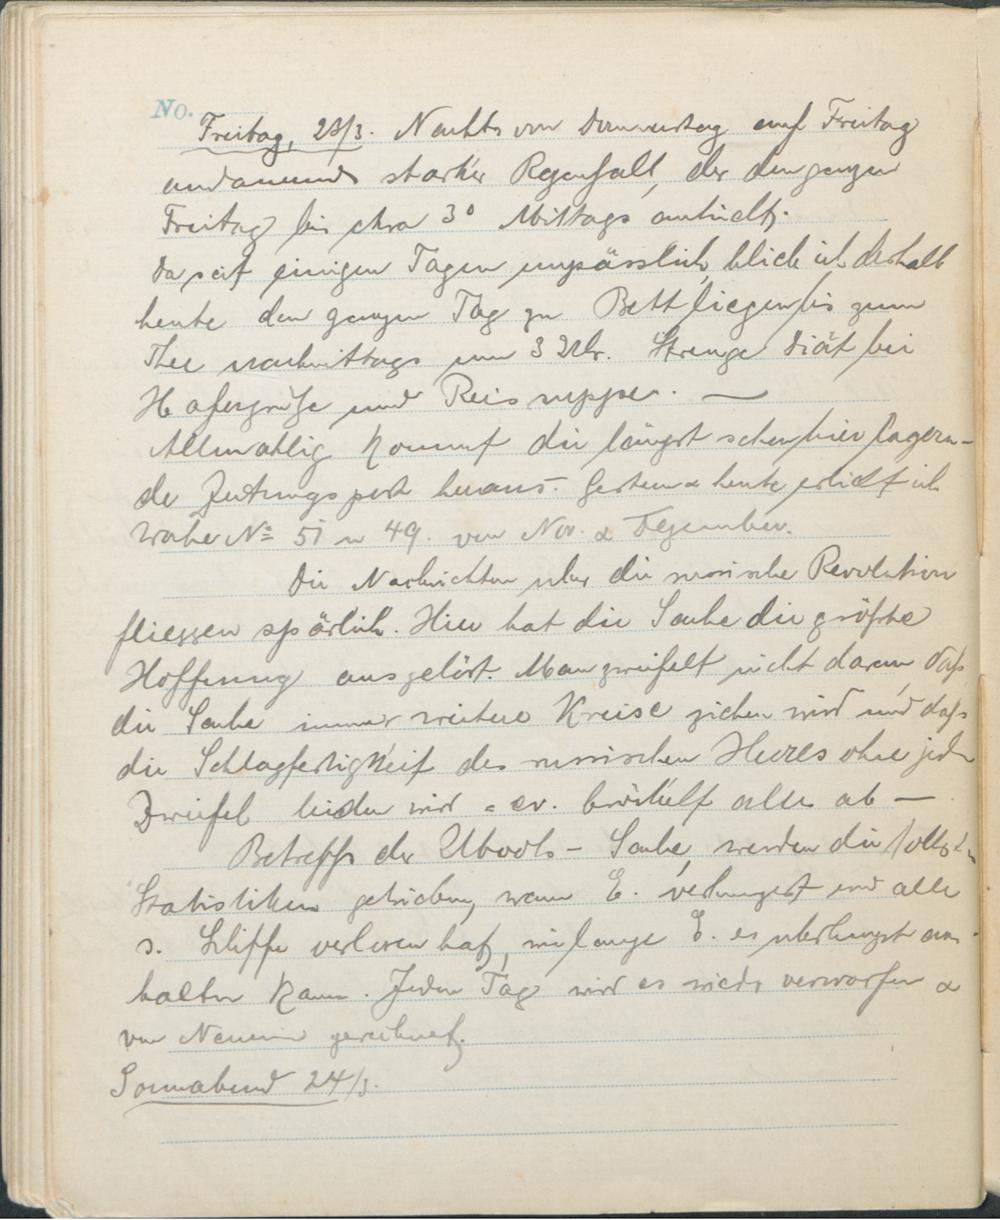 No.
Freitag, 23/3. Nachts von Donnerstag auf Freitag
andauernd starker Regenfall, der den ganzen
Freitag bis etwa 3° Mittags anhielt.
Da seit einigen Tagen unpässlich, blieb ich deshalb
heute den ganzen Tag zu Bett liegen bis zum
Thee nachmittags um 3 Uhr. Strenge Diät bei
Hafergrütze und Reissuppe. —
Allmählig kommt die längst schon hier lagern-
de Zeitungspost heraus. Gestern & heute erhielt ich
Woche No 51 u 49. von Nov. & Dezember.
Die Nachrichten über die russische Revolution
fliessen spärlich. Hier hat die Sache die größte
Hoffnung ausgelöst. Man zweifelt nicht daran daß
die Sache immer weitere Kreise ziehen wird und daß
die Schlagfertigkeit des russischen Heeres ohne jeden
Zweifel leiden wird - ev. bröckelt alles ab —
Betreffs der Uboots-Sache, werden die
Statistiken getrieben, wann E. verhungert und alle
s. Schiffe verloren hat, wie lange E. es überhaupt aus-
halten kann. Jeden Tag wird es wieder verworfen &
von Neuem gerechnet.
Sonnabend 24/3.